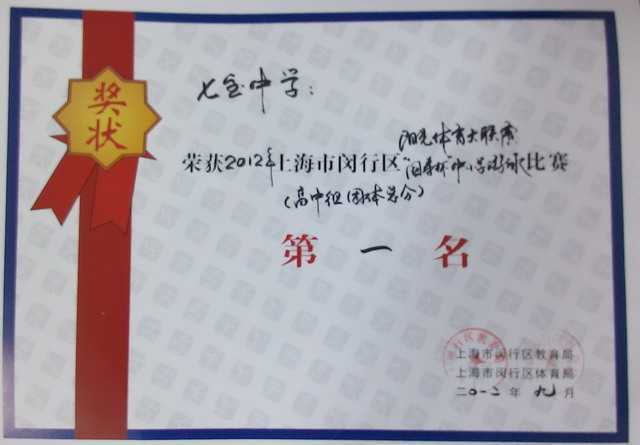 奖状
七宝中学：
阳光体育大联赛
荣获2012年上海市闵行区“阳春杯”中小学游泳比赛
（高中组团体总分）
第一名
上海市闵行区教育局
上海市闵行区体育局
二〇一二年九月